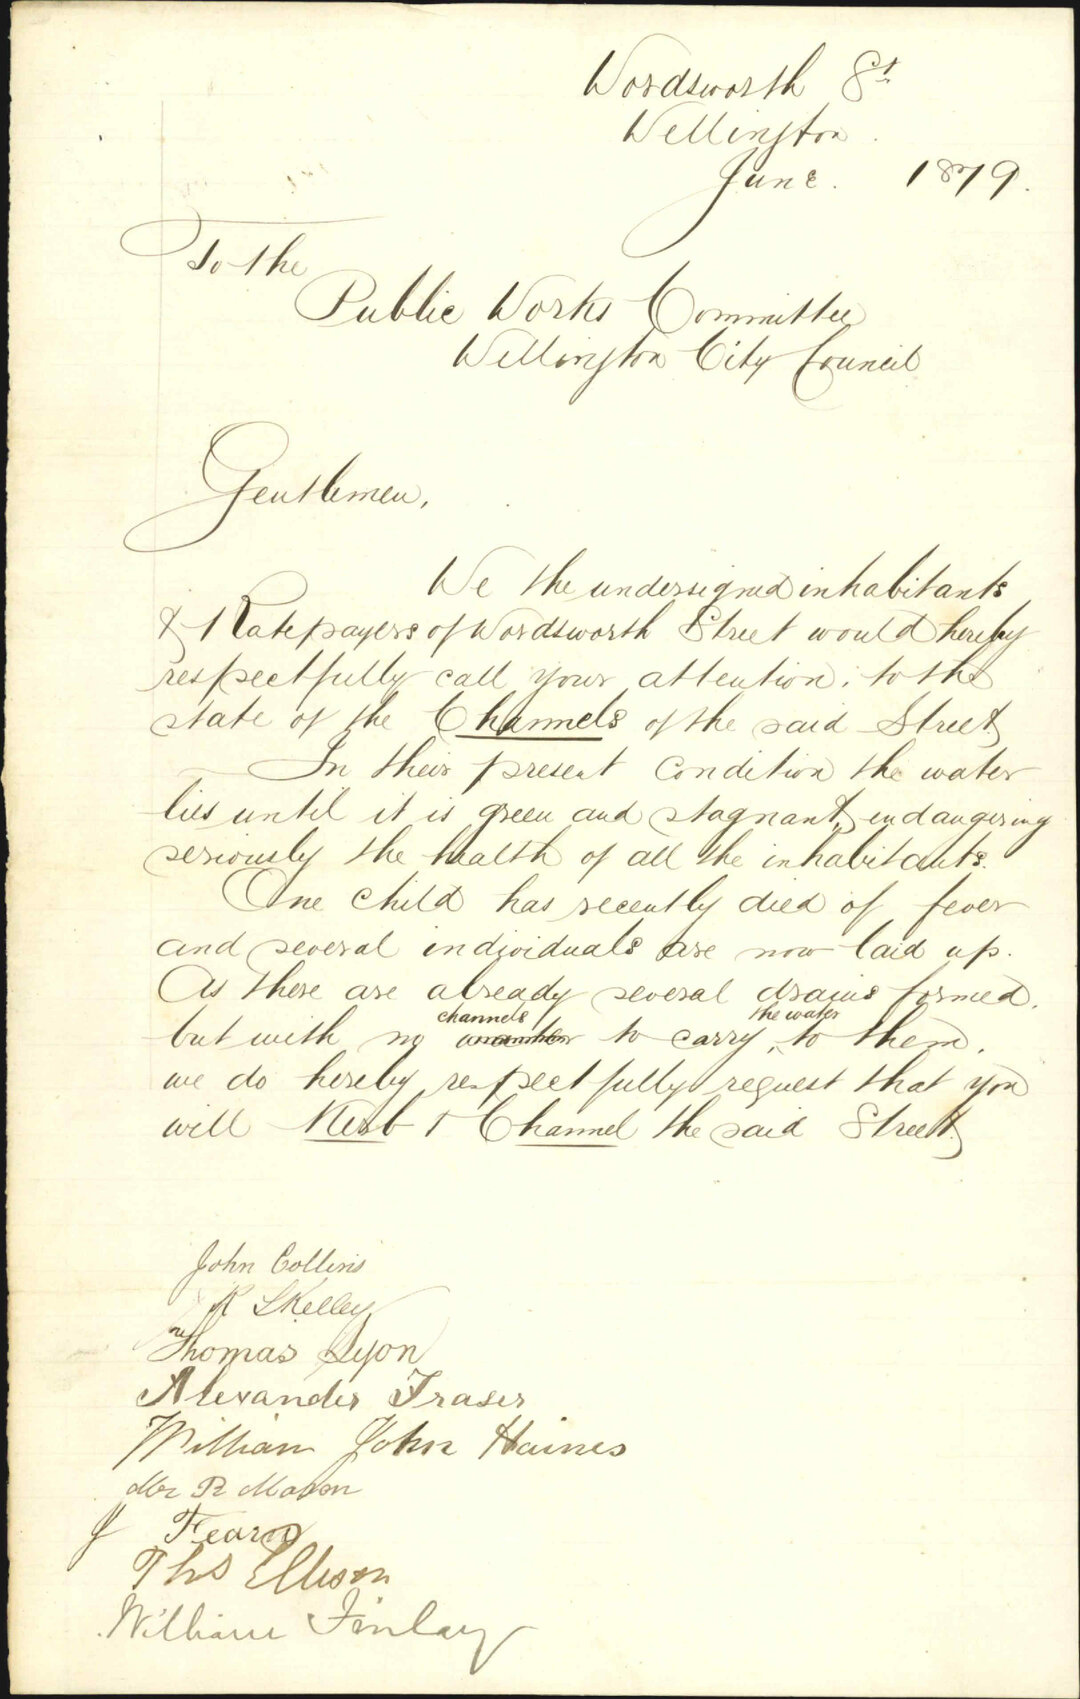 Wordsworth St.
Wellington.
June. 1879.
To the
Public Works Committee
Wellington City Council
Gentlemen,
We the undersigned inhabitants
& Ratepayers of Wordsworth Street would hereby
respectfully call your attention, to the
state of the Channels of the said Street
In their present condition the water
lies until it is green and stagnant, endangering
seriously the health of all the inhabitants.
One child has recently died of fever
and several individuals are now laid up.
As there are already several drains formed,
channels the water
but with no to carry, to them,
we do hereby respectfully request that you
will Kerb & Channel the said Street.
John Collins
R Skelley
Thomas Lyon
Alexander Fraser
William John Haines
Mr R Mason
J Fearn
Thos Ellison
William Finlay